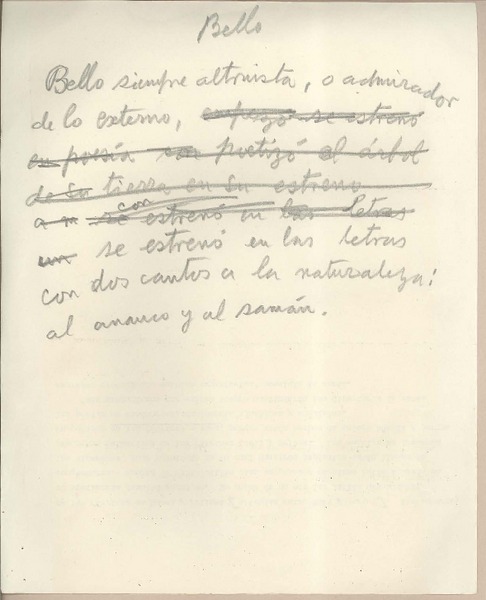 Bello
Bello siempre altruista, o admirador
de lo externo, empezó se estrenó
en poesía con poetizó el árbol
de su tierra en su estreno
a m se con estrenó en las letras
un se estrenó en las letras
con dos cantos a la naturaleza:
al anauco y al samán.